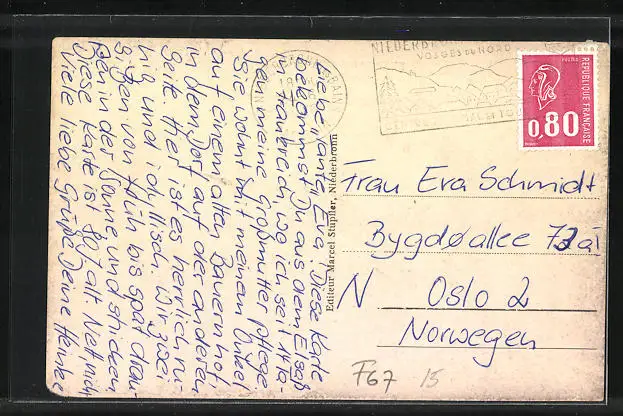 Liebe Tante Eva! Diese Karte
bekommst Du aus dem Elsaß
in Frankreich, wo ich seit 14 Ta-
gen meine Großmutter pflege.
Sie wohnt mit meinem Onkel
auf einem alten Bauernhof
in dem Dorf auf der anderen
Seite. Hier ist es herrlich ru-
hig und idyllisch. Wir
von früh bis spät drau-
ßen in der Sonne und sticken.
Diese Karte ist 80 J. alt. Nett, nicht
Viele liebe Grüße Deine Heinke
Editeur Marcel Stupfler, Niederbronn
NIEDERBRONN
VOSGES DU NORD
POSTES
REPUBLIQUE FRANÇAISE
0,80
Frau Eva Schmidt
Bygdøallee
N Oslo 2
Norwegen
F67 15